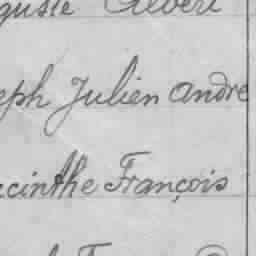 guste Albert
eph Julien André
acinthe François